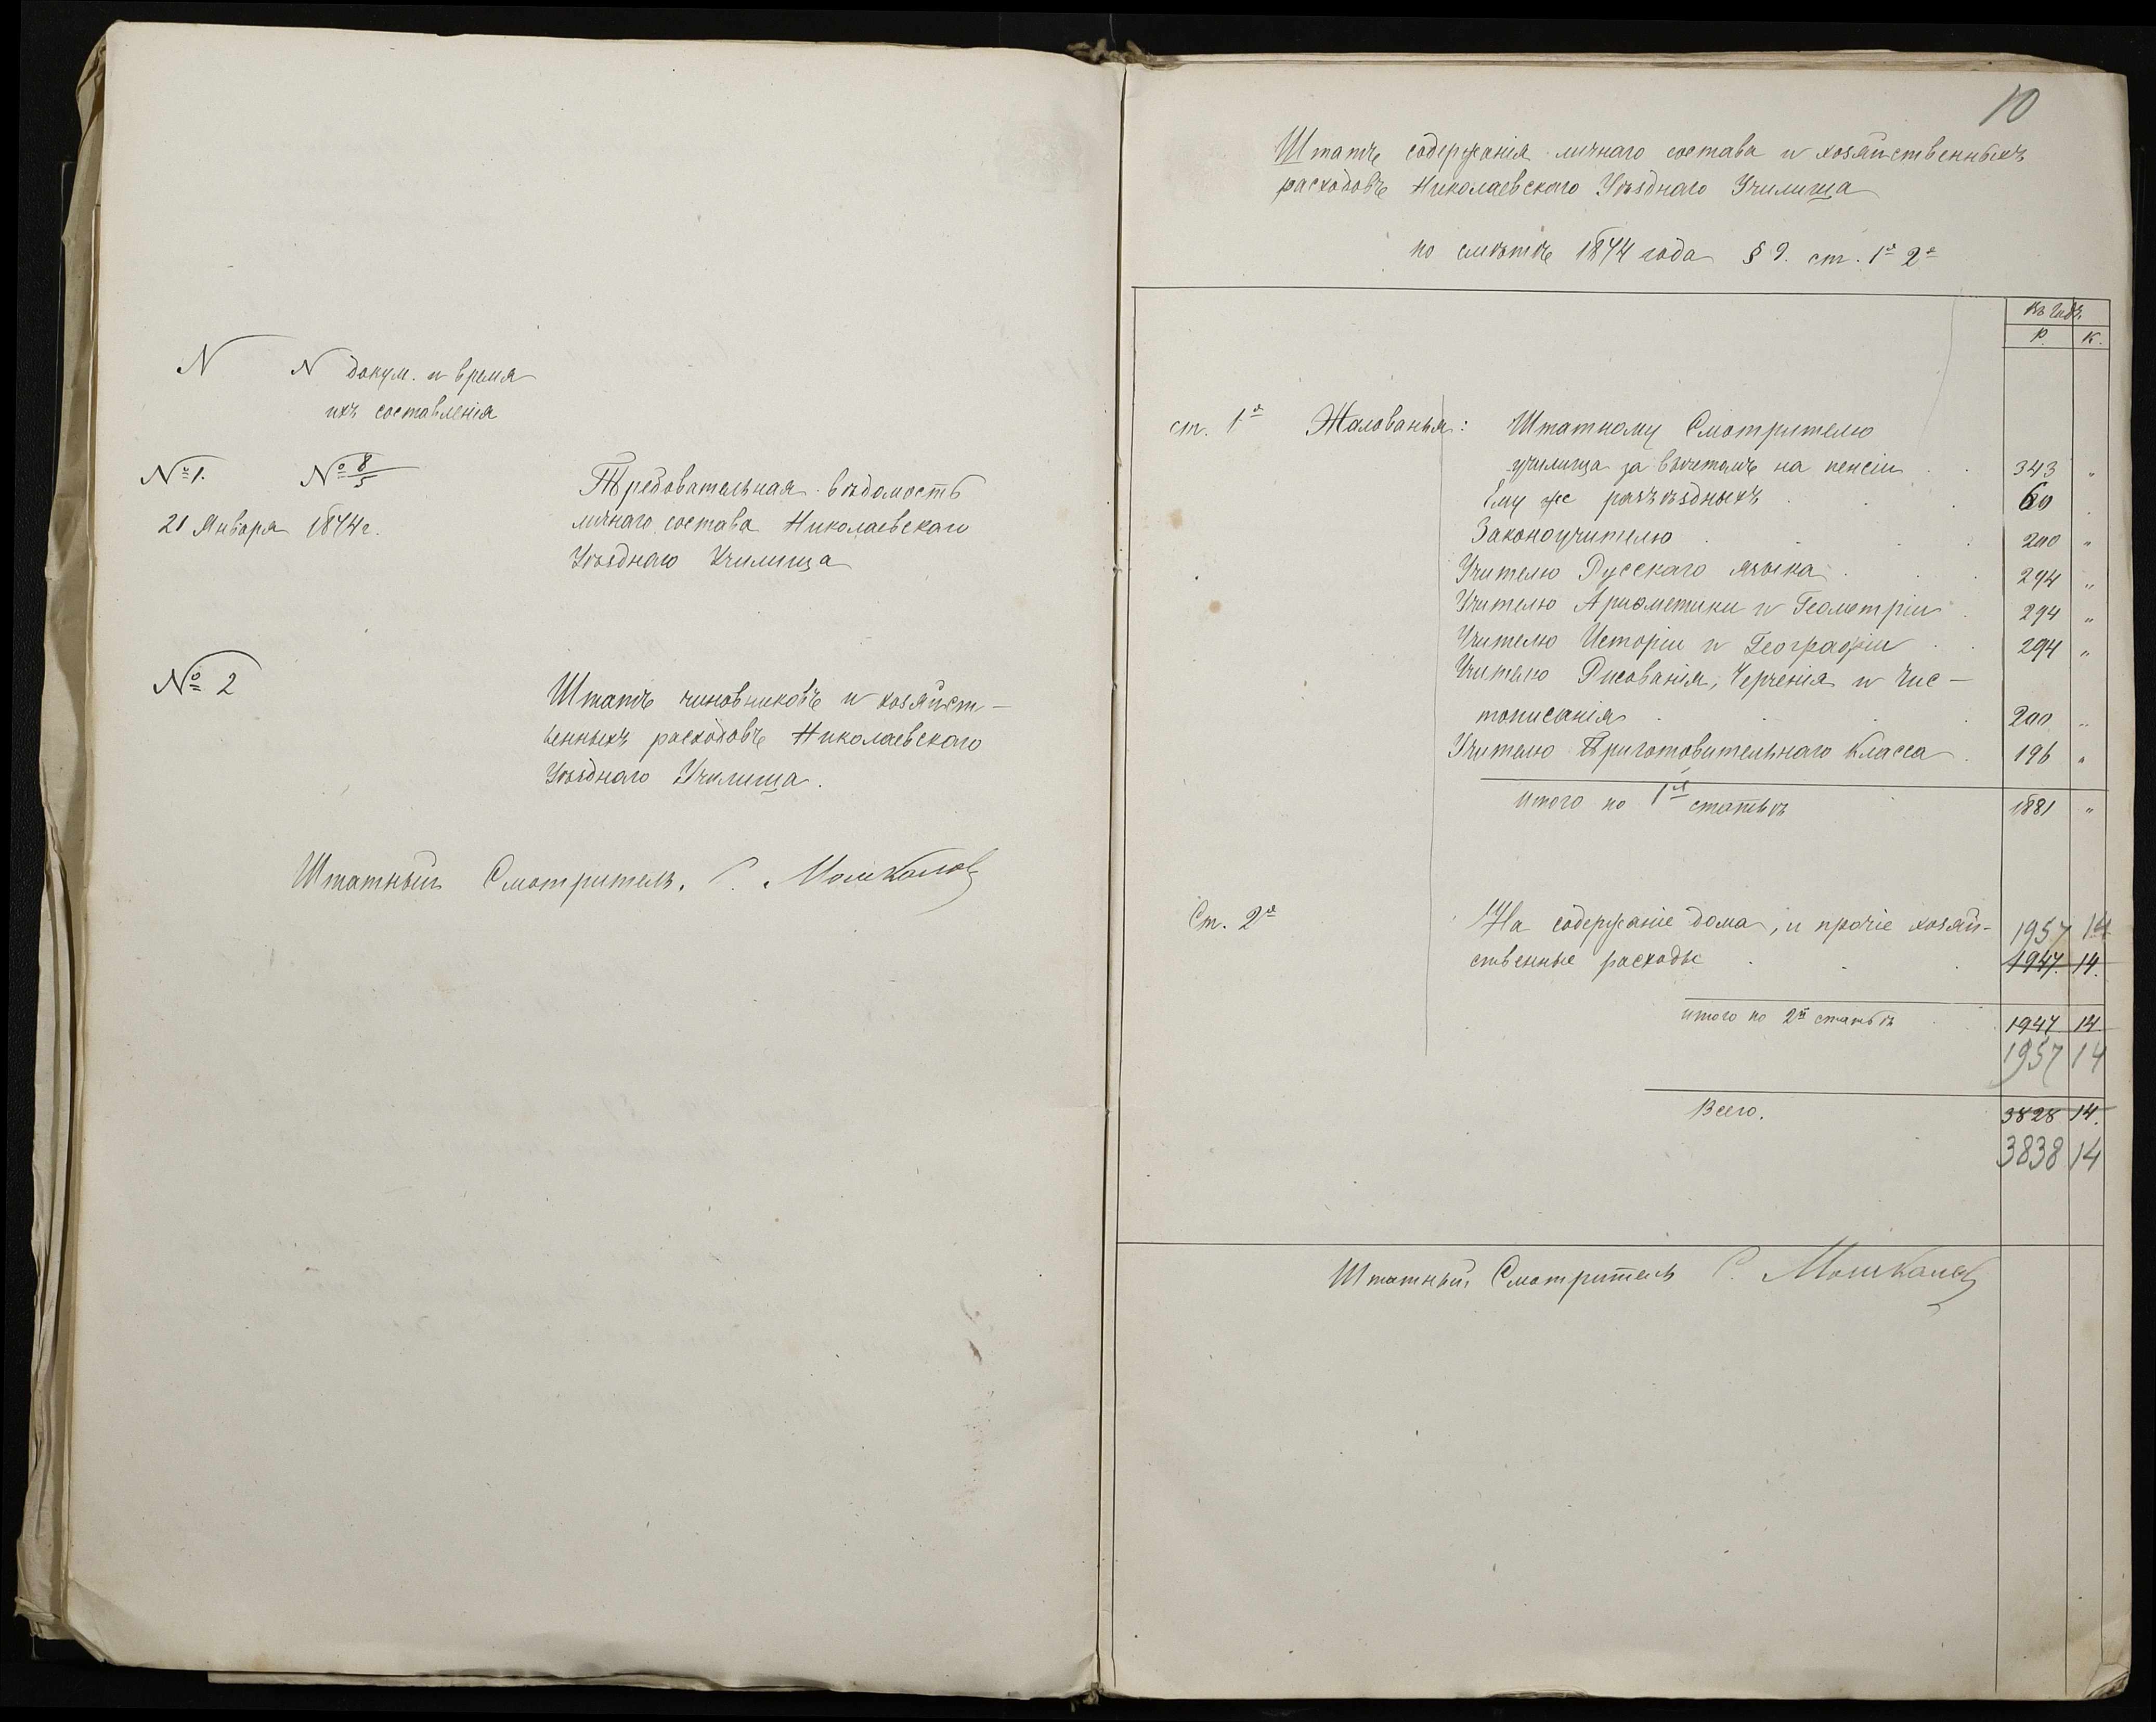 N N докум. и время
ихъ составленія
№ 1. № 8/5
21 Января 1874 г.
Требовательная вѣдомость
личнаго состава Николаевскаго
Уѣзднаго Училища
№ 2
Штатъ чиновниковъ и хозяйст-
венныхъ расходовъ Николаевскаго
Уѣзднаго Училища.
Штатный Смотритель. С.
10
Штатъ содержанія личнаго состава и хозяйственныхъ
расходовъ Николаевскаго Уѣзднаго Училища
по смѣтѣ 1874 года § 9. ст. 1я 2я
Въ годъ.
Р. К.
ст. 1я Жалованья: Штатному Смотрителю
училища за вычетомъ на пенсіи 343 "
Ему же разъѣздныхъ 60
Законоучителю 200 "
Учителю Русскаго языка 294 "
Учителю Ариѳметики и Геометріи 294 "
Учителю Исторіи и Географіи 294 "
Учителю Рисованія, Черченія и Чис-
тописанія 200 "
Учителю Приготовительнаго Класса 196 "
итого по 1й статьѣ 1881 "
Ст. 2я На содержаніе дома, и прочіе хозяй- 1957 14
ственные расходы 1947. 14.
итого по 2й статьѣ 1947 14.
1957 14
Всего. 3828 14.
3838 14
Штатный Смотритель С.